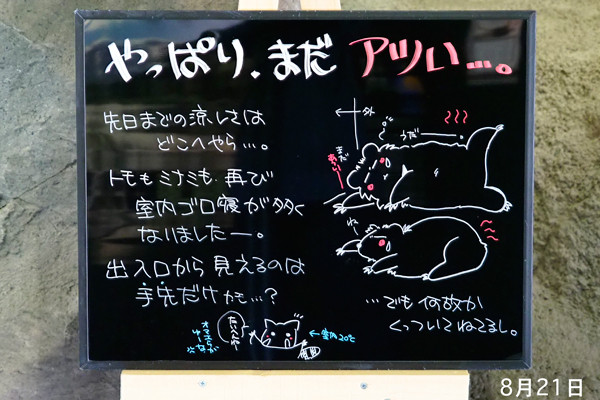 やっぱり、まだ アツい…。
先日までの涼しさは
どこへやら…。
トモもミナミも、再び
室内ゴロ寝が多く
なりましたー。
出入口から見えるのは
手先だけかも…?
外
うだー
まだ
あつい
…でも何故か
くっついてねてるし。
←室内20℃
オマエらが
ゆーな
8月21日